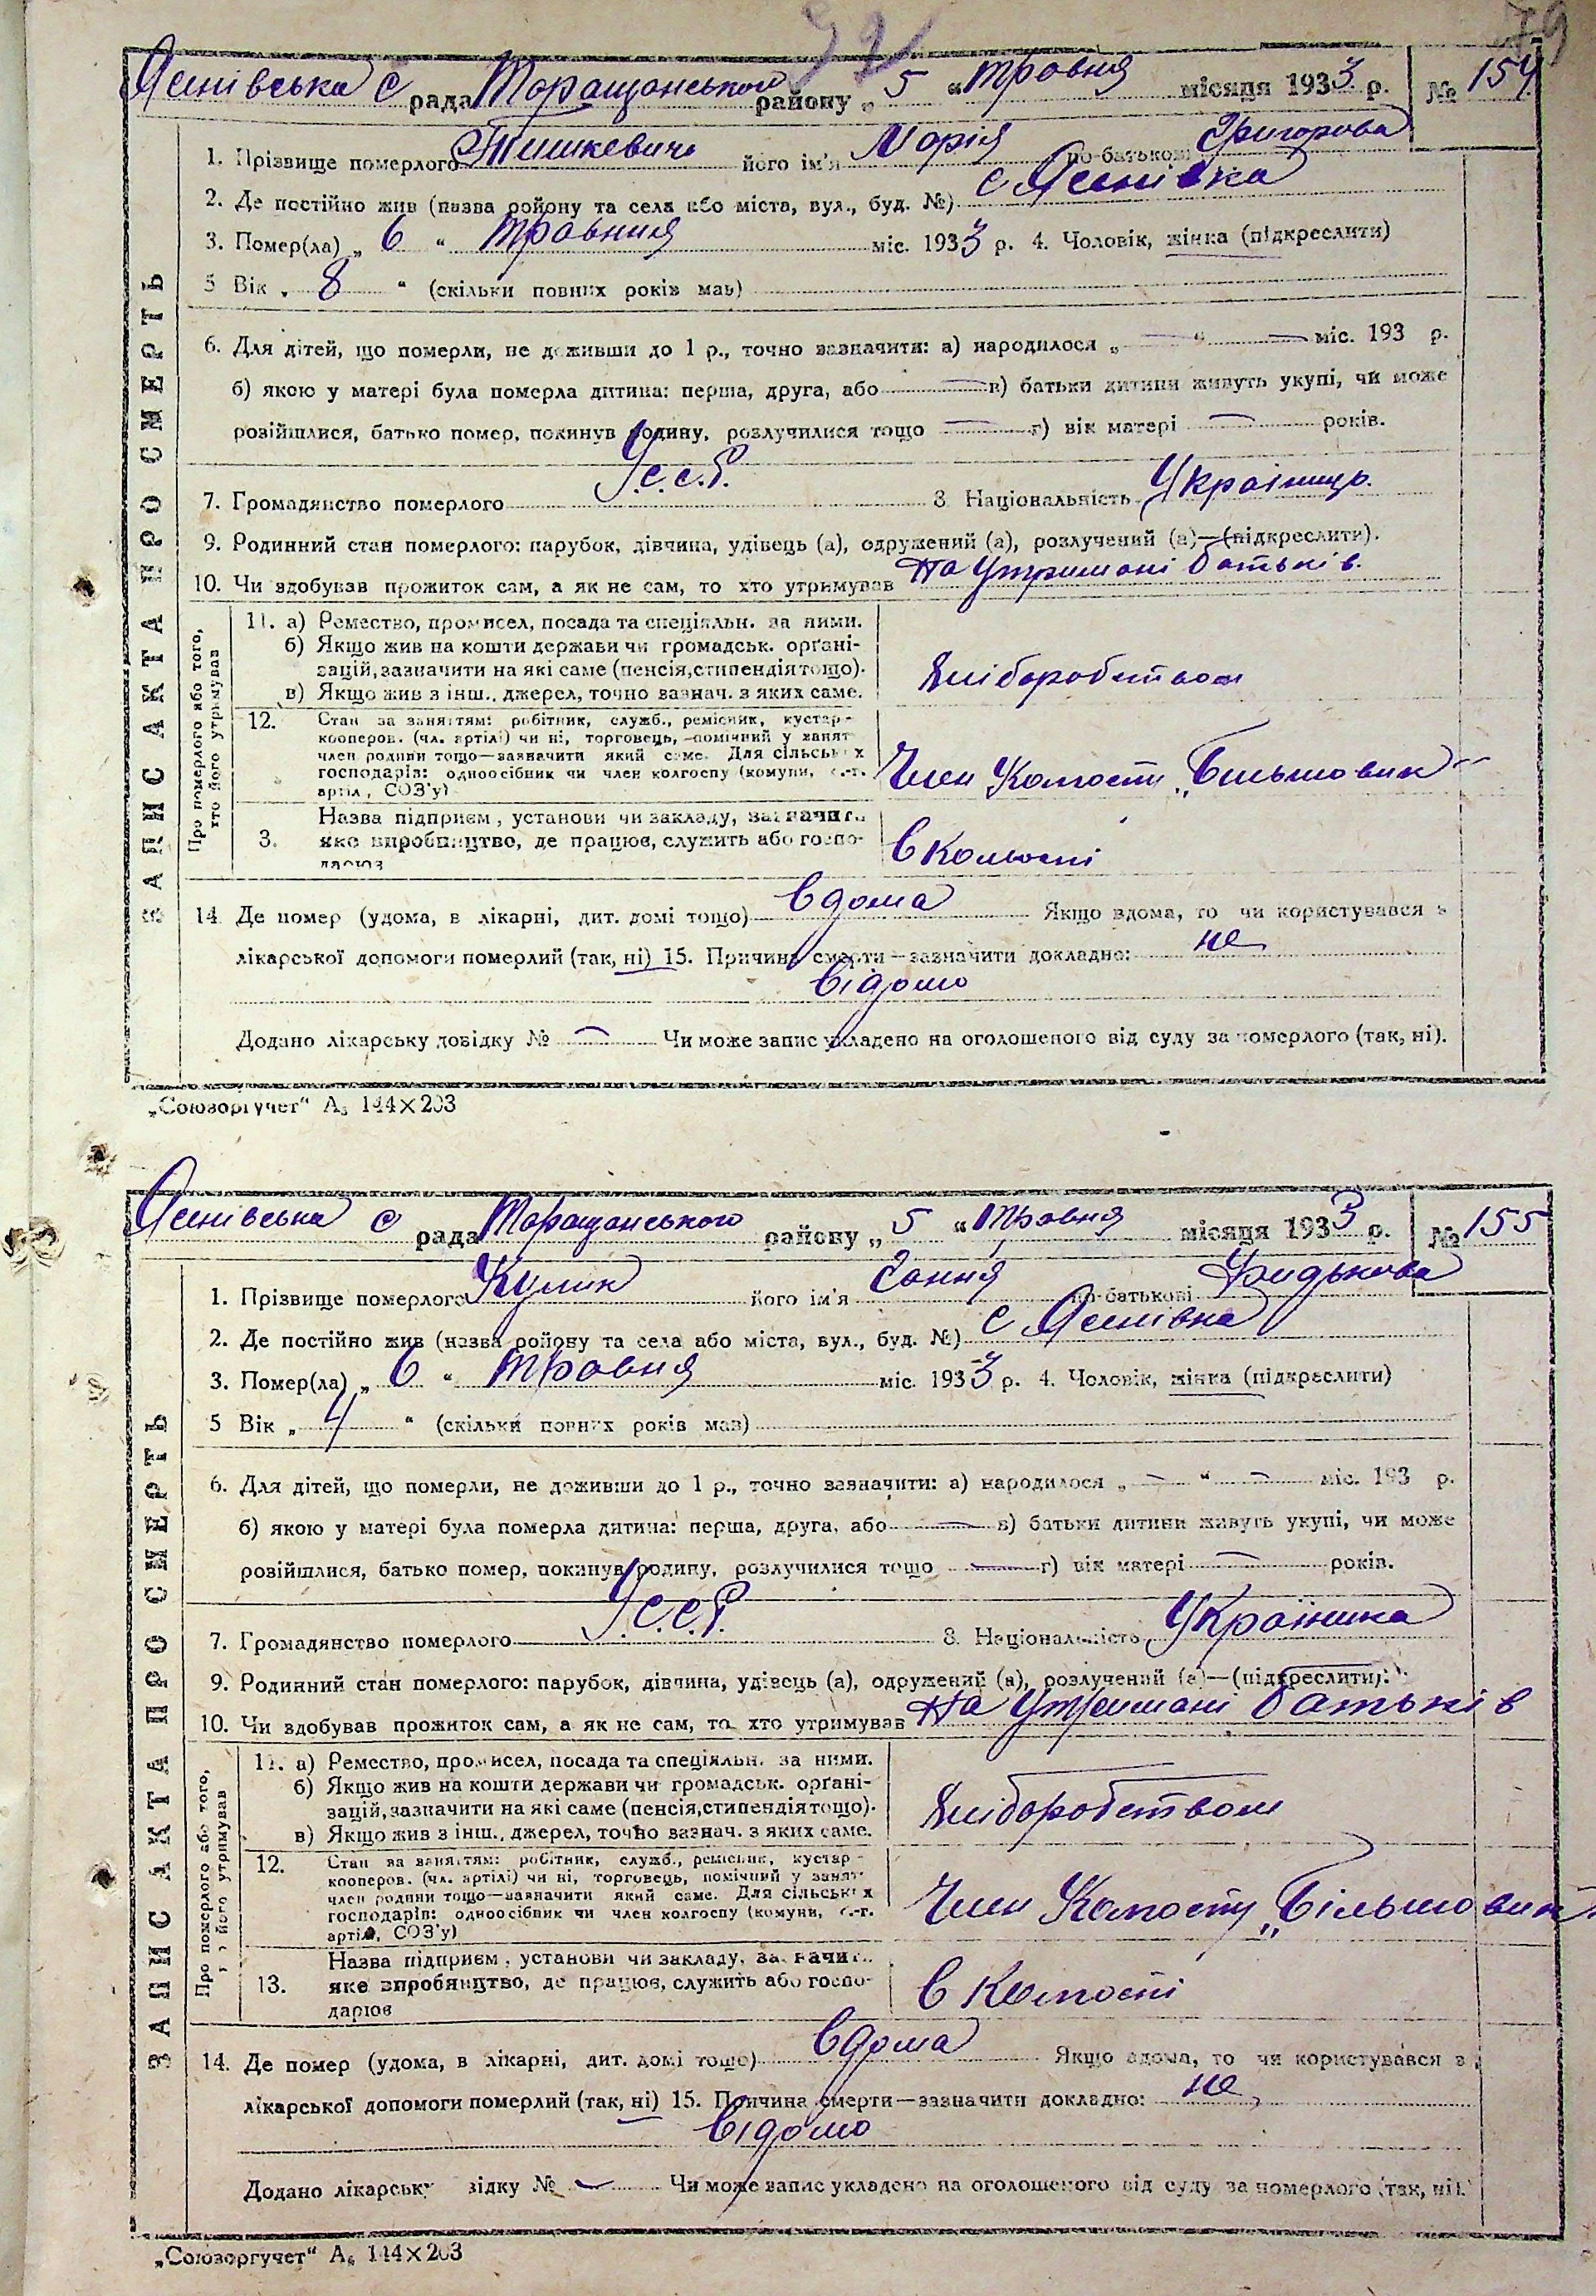 79
Ясенівська с рада Таращанського району „ 5 “ травня місяця 1933 р. № 154
1. Прізвище померлого Тишкевич його ім'я Марія по-батькові Григорова
2. Де постійно жив (назва району та села або міста, вул., буд. №) с Ясенівка
3. Помер(ла) „ 6 “ травния міс. 1933 р. 4. Чоловік, жінка (підкреслити)
5 Вік „ 8 “ (скільки повних років мав)
6. Для дітей, що померли, не доживши до 1 р., точно зазначити: а) народилося „ — “ — міс. 193 р.
б) якою у матері була померла дитина: перша, друга, або — в) батьки дитини живуть укупі, чи може
розійшлися, батько помер, покинув родину, розлучилися тощо — г) вік матері — років.
7. Громадянство померлого У.с.с.Р. 8. Національність Українець
9. Родинний стан померлого: парубок, дівчина, удівець (а), одружений (а), розлучений (а)—(підкреслити).
10. Чи здобував прожиток сам, а як не сам, то хто утримував на утримані батьків.
ЗАПИС АКТА ПРО СМЕРТЬ
Про померлого або того, хто його утримував
11. а) Ремество, промисел, посада та спеціяльн. за ними.
б) Якщо жив на кошти держави чи громадськ. орґані-
зацій, зазначити на які саме (пенсія, стипендія тощо).
в) Якщо жив з інш., джерел, точно вазнач. з яких саме.
Хліборобством
12. Стан за заняттям: робітник, служб., ремісник, кустар-
кооперов. (чл. артілі) чи ні, торговець, помічний у занят
член родини тощо—зазначити який саме. Для сільськ х
господарів: одноосібник чи член колгоспу (комуни, с.-г.
артіл, СОЗ'у)
Член Колгоспу „Бильшовик“
3. Назва підприєм, установи чи закладу, зазначит.
яке виробництво, де працює, служить або госпо-
дарює
В колгоспі
14. Де помер (удома, в лікарні, дит. домі тощо) вдома Якщо вдома, то чи користувався з
лікарської допомоги померлий (так, ні) 15. Причина смерти—зазначити докладно: не
відомо
Додано лікарську довідку № — Чи може запис укладено на оголошеного від суду за померлого (так, ні).
„Союзоргучет“ А₅ 144×203
Ясенівська с рада Таращанського району „ 5 “ травня місяця 1933 р. № 155
1. Прізвище померлого Кулик його ім'я Ганния по-батькові Фидькова
2. Де постійно жив (назва району та села або міста, вул., буд. №) с Ясенівка
3. Помер(ла) „ 6 “ травня міс. 1933 р. 4. Чоловік, жінка (підкреслити)
5 Вік „ 4 “ (скільки повних років мав)
6. Для дітей, що померли, не доживши до 1 р., точно зазначити: а) народилося „ — “ — міс. 193 р.
б) якою у матері була померла дитина: перша, друга, або — в) батьки дитини живуть укупі, чи може
розійшлися, батько помер, покинув родину, розлучилися тощо — г) вік матері — років.
7. Громадянство померлого У.С.С.Р. 8. Національність Українка
9. Родинний стан померлого: парубок, дівчина, удівець (а), одружений (а), розлучений (а)—(підкреслити).
10. Чи здобував прожиток сам, а як не сам, то хто утримував на утримані батьків
ЗАПИС АКТА ПРО СМЕРТЬ
Про померлого або того, його утримував
11. а) Ремество, промисел, посада та спеціяльн. за ними.
б) Якщо жив на кошти держави чи громадськ. орґані-
зацій, зазначити на які саме (пенсія, стипендія тощо).
в) Якщо жив з інш., джерел, точно вазнач. з яких саме.
Хліборобством
12. Стан за заняттям: робітник, служб., ремісник, кустар-
кооперов. (чл. артілі) чи ні, торговець, помічний у занят
член родини тощо—зазначити який саме. Для сільськ х
господарів: одноосібник чи член колгоспу (комуни, с.-г.
артіл, СОЗ'у)
Член Колгоспу „Більшовик
13. Назва підприєм, установи чи закладу, зазначит.
яке виробництво, де працює, служить або госпо-
дарює
В Колгоспі
14. Де помер (удома, в лікарні, дит. домі тощо) вдома Якщо вдома, то чи користувався з
лікарської допомоги померлий (так, ні) 15. Причина смерти—зазначити докладно: не
відомо
Додано лікарську відку № — Чи може запис укладено на оголошеного від суду за померлого (так, ні).
„Союзоргучет“ А₅ 144×203